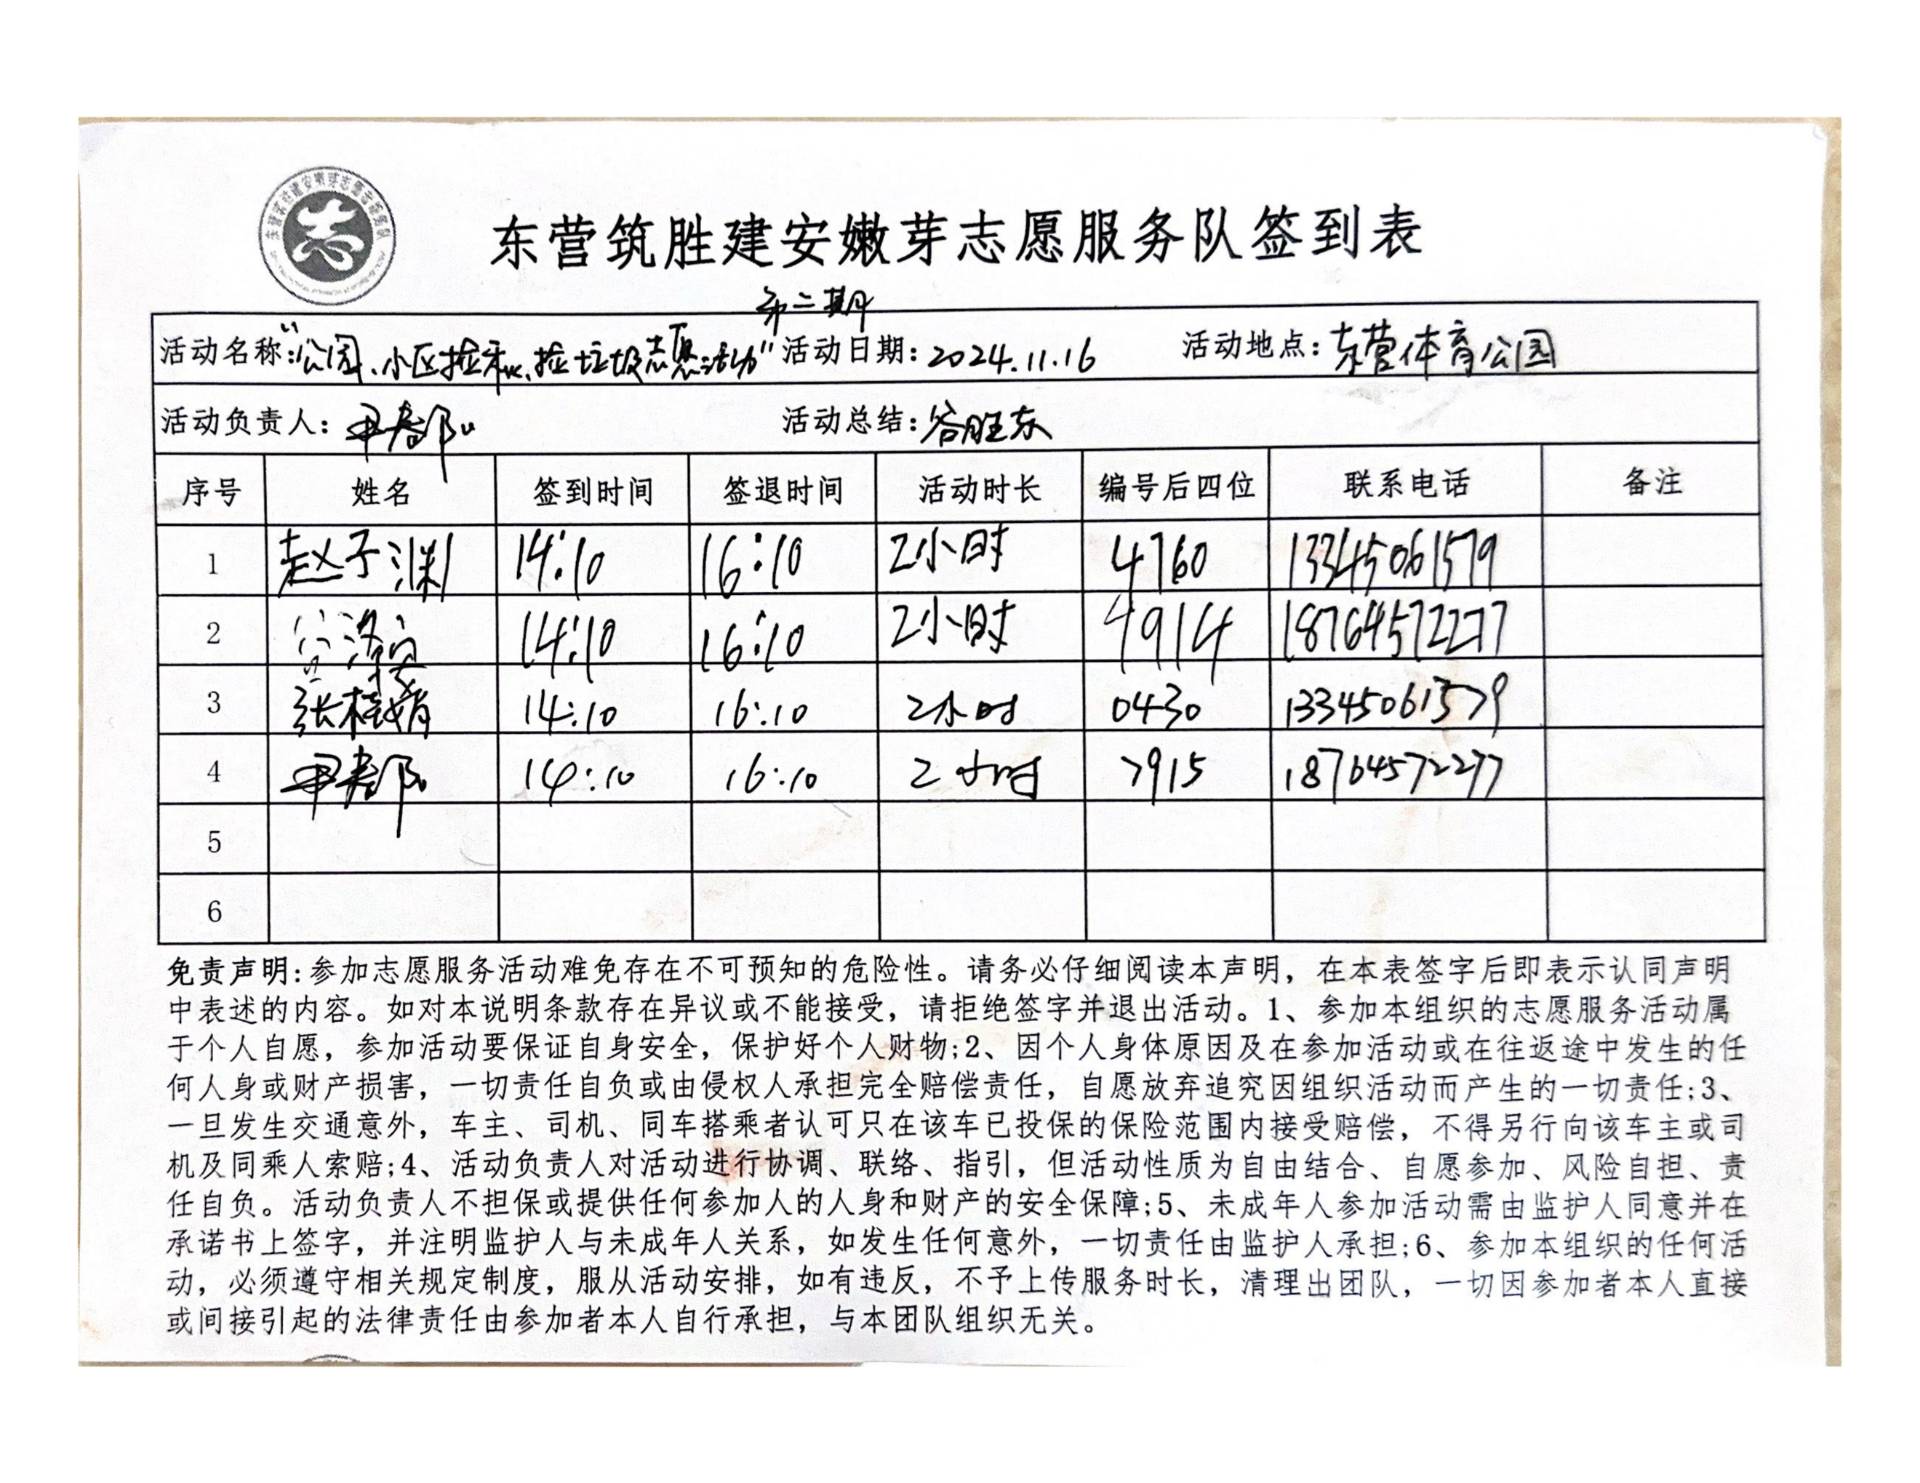 东营筑胜建安嫩芽志愿服务队签到表
第二期
活动名称:“公园、小区捡拾垃圾志愿活动” 活动日期: 2024.11.16 活动地点: 东营体育公园
活动负责人: 活动总结: 谷胜东
序号 姓名 签到时间 签退时间 活动时长 编号后四位 联系电话 备注
1 赵子渊 14:10 16:10 2小时 4760 13345061579
2 14:10 16:10 2小时 4914 18764572277
3 张桂娟 14:10 16:10 2小时 0430 13345061579
4 14:10 16:10 2小时 7915 18764572277
5
6
免责声明:参加志愿服务活动难免存在不可预知的危险性。请务必仔细阅读本声明，在本表签字后即表示认同声明
中表述的内容。如对本说明条款存在异议或不能接受，请拒绝签字并退出活动。1、参加本组织的志愿服务活动属
于个人自愿，参加活动要保证自身安全，保护好个人财物;2、因个人身体原因及在参加活动或在往返途中发生的任
何人身或财产损害，一切责任自负或由侵权人承担完全赔偿责任，自愿放弃追究因组织活动而产生的一切责任;3、
一旦发生交通意外，车主、司机、同车搭乘者认可只在该车已投保的保险范围内接受赔偿，不得另行向该车主或司
机及同乘人索赔;4、活动负责人对活动进行协调、联络、指引，但活动性质为自由结合、自愿参加、风险自担、责
任自负。活动负责人不担保或提供任何参加人的人身和财产的安全保障;5、未成年人参加活动需由监护人同意并在
承诺书上签字，并注明监护人与未成年人关系，如发生任何意外，一切责任由监护人承担;6、参加本组织的任何活
动，必须遵守相关规定制度，服从活动安排，如有违反，不予上传服务时长，清理出团队，一切因参加者本人直接
或间接引起的法律责任由参加者本人自行承担，与本团队组织无关。